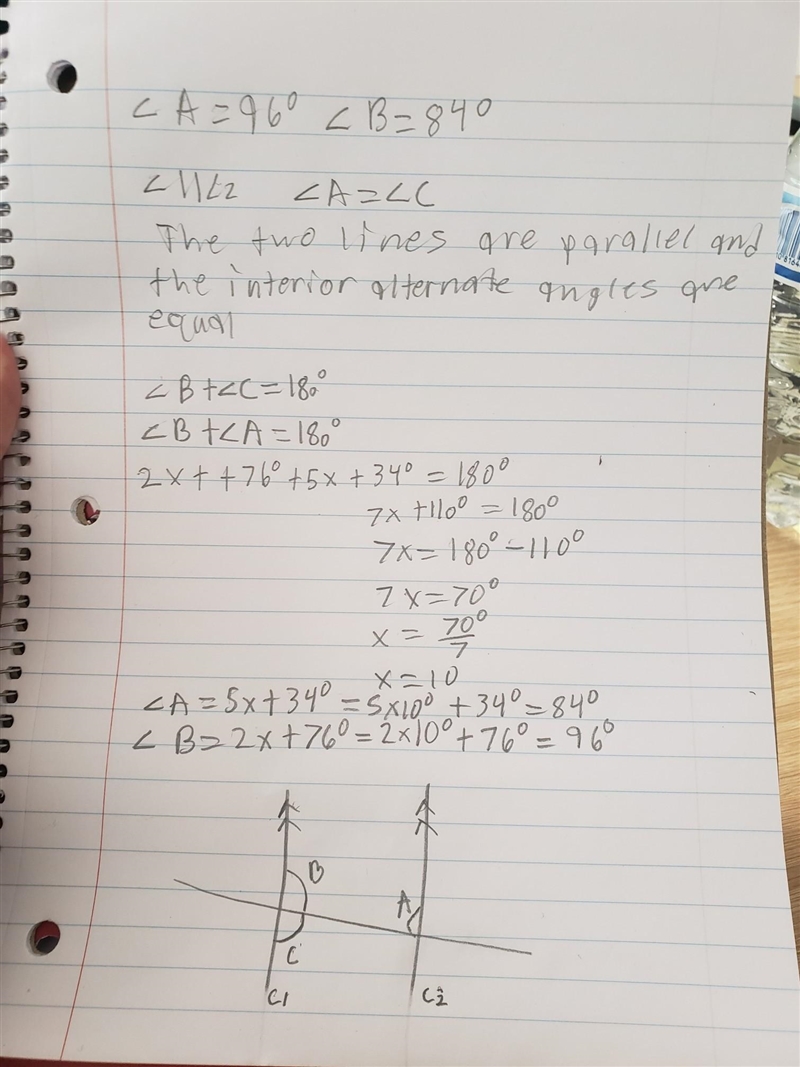 ∠A=96⁰ ∠B=84⁰
∠11∠2 ∠A=∠C
The two lines are parallel and
the interior alternate angles are
equal
∠B+∠C=180⁰
∠B+∠A=180⁰
2x++76⁰+5x+34⁰=180⁰
7x+110⁰=180⁰
7x=180⁰-110⁰
7x=70⁰
x=70⁰/7
x=10
∠A=5x+34⁰=5x10⁰+34⁰=84⁰
∠B=2x+76⁰=2x10⁰+76⁰=96⁰
B
A
C
C1
C2